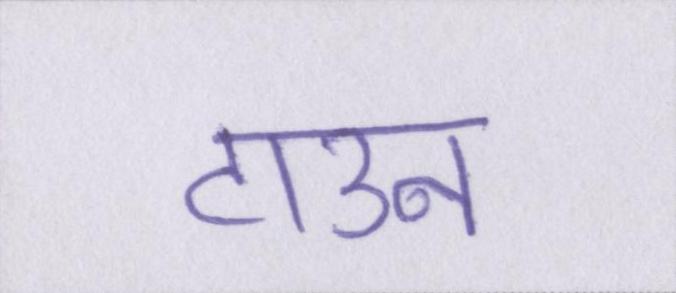 टाउन